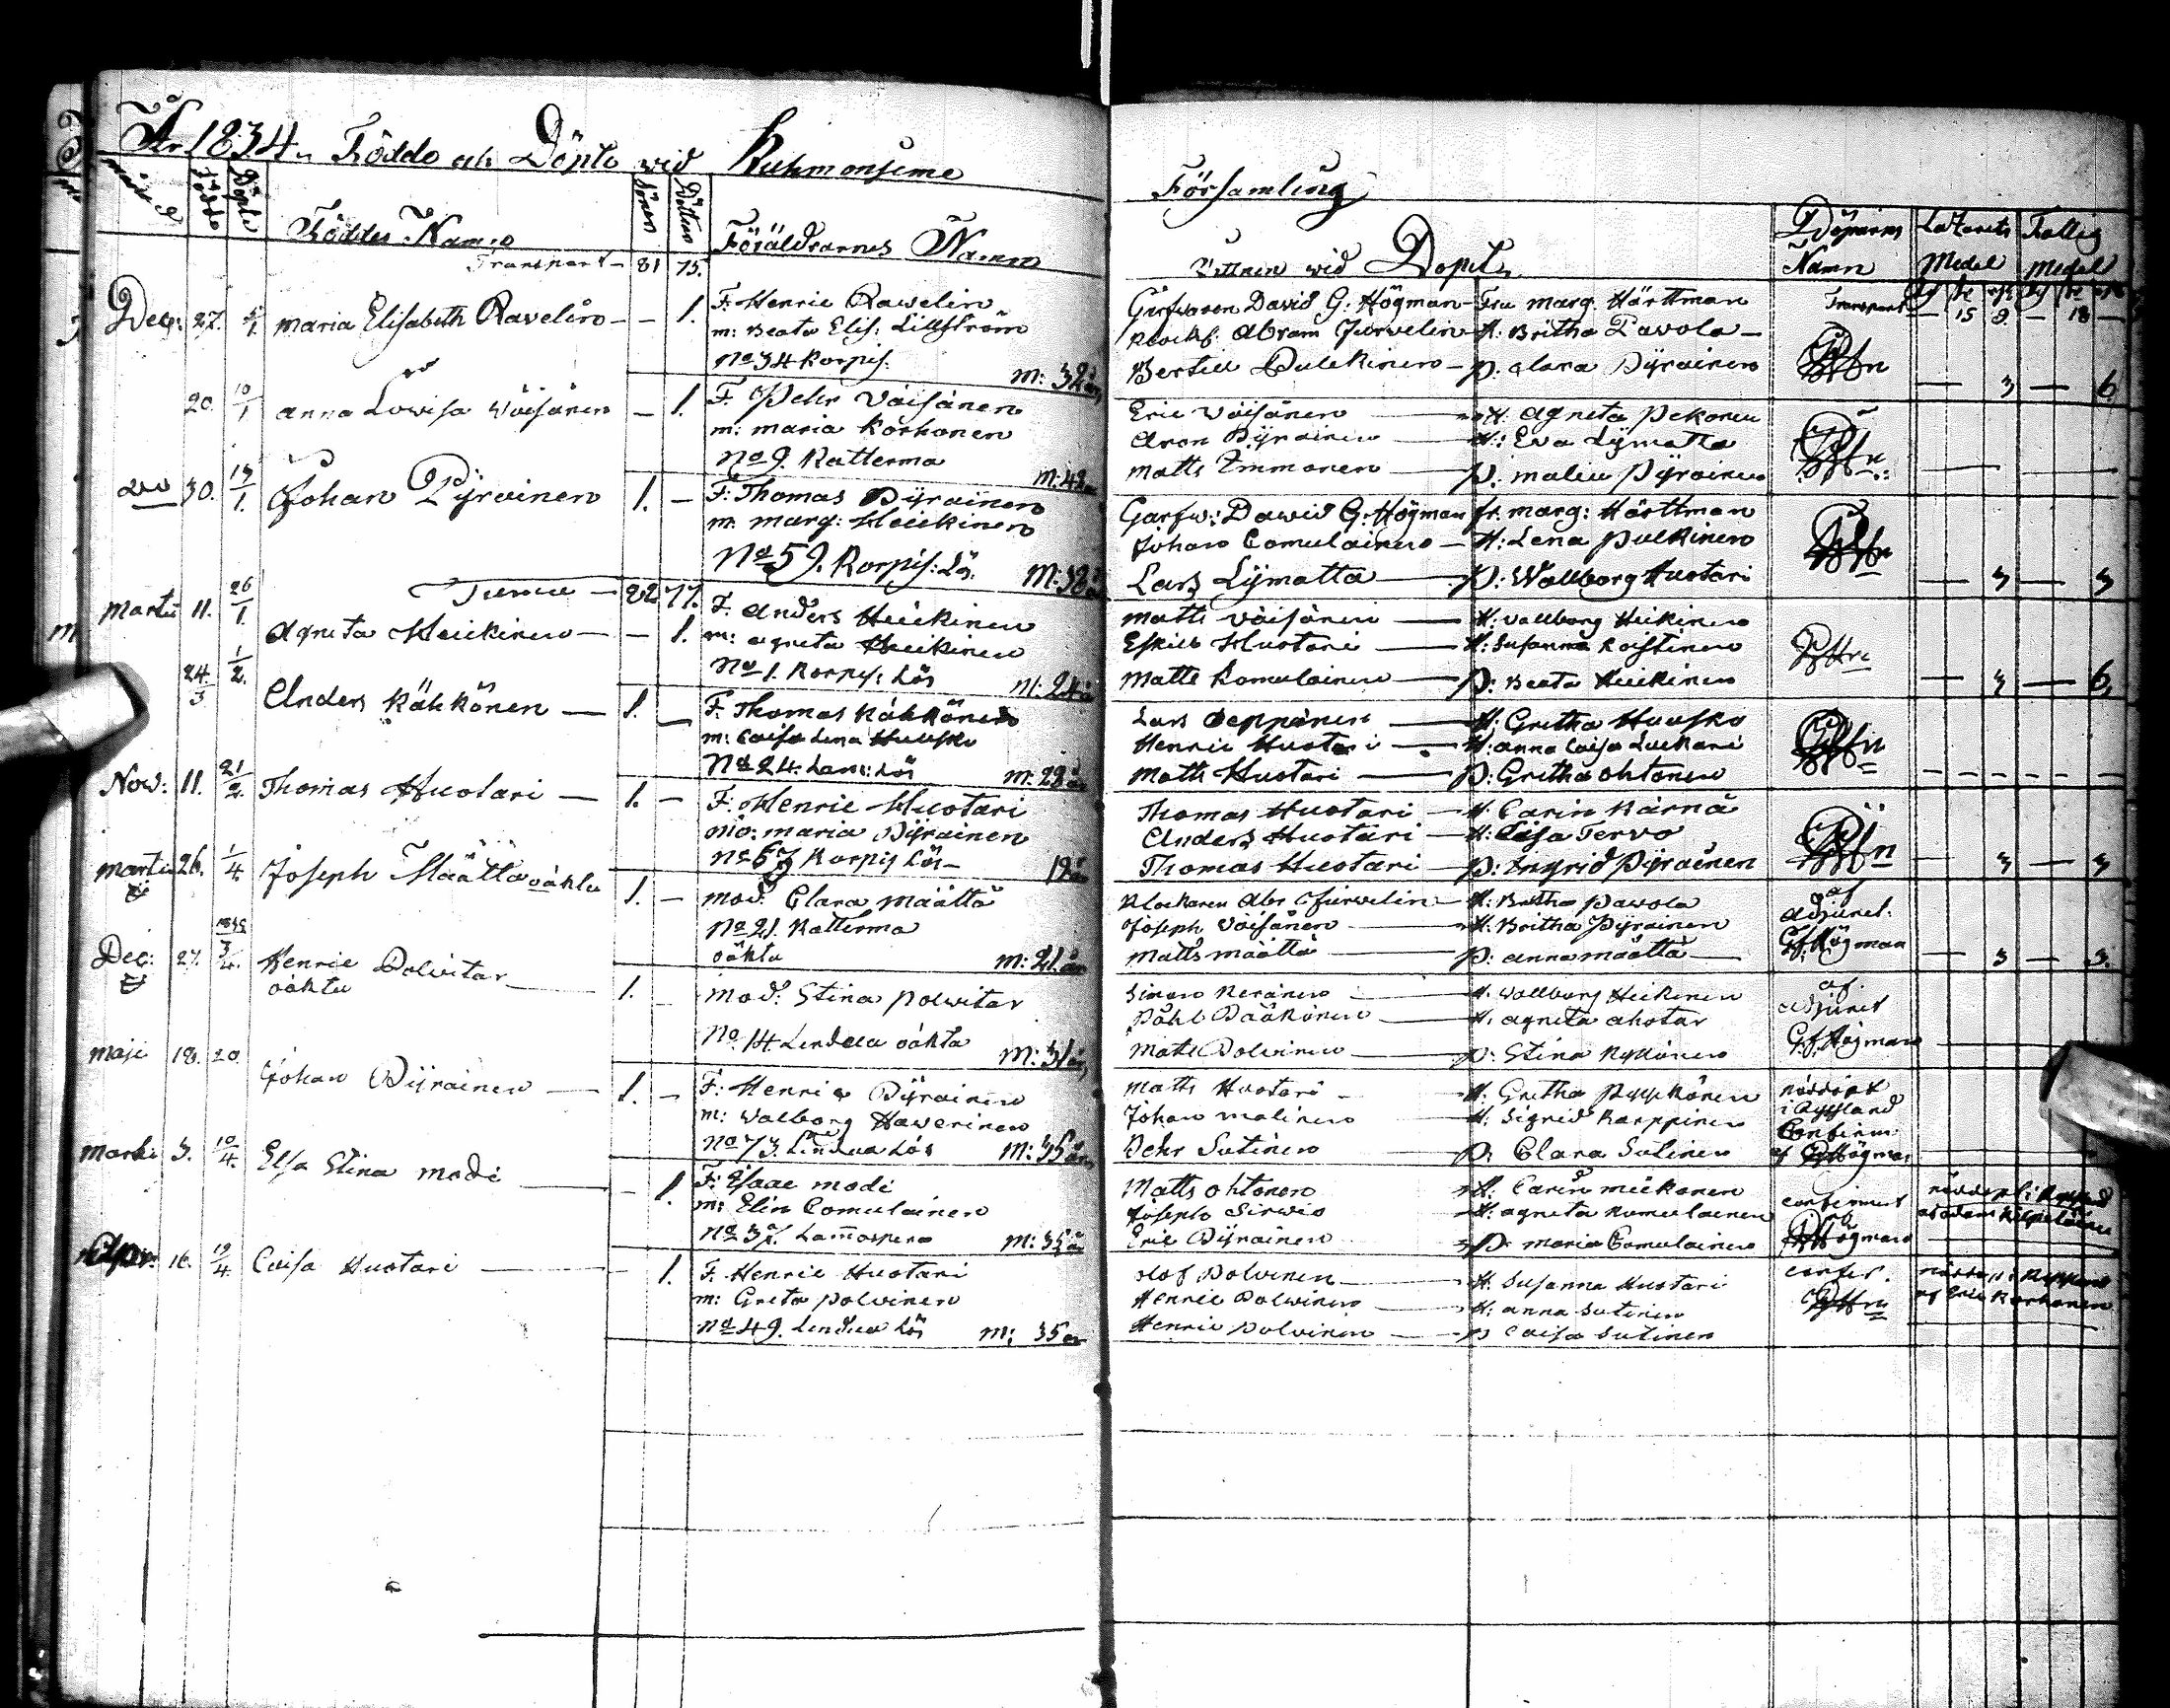 År 1834. Födde och Döpte wid Kuhmonieme
Församling
Månad
Födde
Döpte
Föddes Namn
Söner
Döttrar
Föräldrarnes Namn
Vittnen wid Dopet
Döparens Namn
Lazarets Medel
Fattig Medel
Transport 81 75.
Transport — 15 9. — 18 —
Dec: 27. 1/1 Maria Elisabeth Ravelin — — 1.
F. Henric Ravelin
m: Beata Elis: Lillström
No 34 Korpis. m: 32 år
Garfvaren David G. Högman — Fru Marg. Härttman
Klockf: Abram Jurvelin — H: Britha Pavola —
Bertell Pulckinen — p. Clara Pyrainen
— 3 — 6
20. 10/1 Anna Lovisa Väisänen — 1.
F. Pehr Väisänen
m: Maria Korhonen
No 9. Katterma m: 42
Eric Väisänen — H. Agneta Pekonen
Aron Pyrainen — H: Eva Lymatta
Matts Immonen — p. Malin Pyrainen
30. 13/1. Johan Pyrainen 1. —
F: Thomas Pyrainen
m: Marg: Heickinen
No 59. Korpis: Lös. M: 38
Garfw: David G: Högman fr. Marg: Härttman
Johan Comulainen — H: Lena Pulkinen
Lars Lymatta — p: Wallborg Huotari
— 3 — 3
82 77.
Martii 11. 26/1. Agneta Heickinen — — 1.
F. Anders Heickinen
m: Agneta Heickinen
No 1. Korpis: Lös m: 24
Matts Väisänen — H: Vallborg Heikinen
Eskill Huotari — H: Susanna Roistinen
Matts Komulainen — p: Beata Heickinen
— 3 — 6,
24/3 1/2. Anders Kähkönen — 1. —
F. Thomas Kähkönen
m: Caisa Lena Huusko
No 24. Lam: Lös m: 28
Lars Seppänen — H: Gretha Huusko
Henric Huotari — H: Anna Caisa Luckari
Matts Huotari — p: Gretha Ohtonen
Now: 11. 21/2. Thomas Huotari — 1. —
F: Henric Huotari
mo: Maria Pyrainen
No 67 Korpis Lös — 19
Thomas Huotari — H: Carin Kärnä
Anders Huotari — H: Caisa Tervo
Thomas Huotari — p: Ingrid Pyrainen
— 3 — 3
Martii 26. 1/4. Joseph Määtta oäkta 1. —
mod: Clara Määttä
No 21. Katterma
oäkta m: 21. år
Klockaren Abr Jurvelin — H: Britha Pavola
Joseph Väisänen — H. Britha Pyrainen
Matts Määttä — p: Anna Määttä —
af
Adjunct:
G f Högman
— 3 — 3.
1835
Dec: 27. 3/4. Henric Polvitar
oäkta 1. —
mod: Stina Polvitar
No. 14 Lendua oäkta m: 31 år
Simon Keränen — H. Wallborg Heikinen
Påhl Pääkönen — H. Agneta Ahotar
Matts Polvinen — p: Stina Kyllönen
af
Adjunct
G f Högman
Maji 18. 20 Johan Pyrainen — 1. —
F: Henric Pyrainen
m: Walborg Haverinen
No 73. Lendua Lös m: 35 år
Matts Huotari — H. Gretha Pyykönen
Johan Malinen — H. Sigrid Karppinen
Pehr Sutinen — p. Clara Sutinen
nöddöpt
i Ryssland
Confirm:
af Högman
Martii 3. 10/4. Elsa Stina Modi — — 1.
F: Isaac Modi
m: Elin Comulainen
No 37. Lammaspera m: 35 år
Matts Ohtonen — H. Carin Mickonen
Joseph Sirwiö — H: Agneta Komulainen
Eric Pyrainen — p. Maria Comulainen
confirmert
Högman
nöddöpt i Ryssland
af Adam Kilpeläinen
Apr: 16. 19/4 Caisa Huotari — 1.
F. Henric Huotari
m: Greta Polvinen
No 49. Lendua Lös m: 35 år
Olof Polvinen — H. Susanna Huotari
Henric Polvinen — H: Anna Sutinen
Henric Polvinen — p Caisa Sutinen
confir.
nöddöpt i Ryssland
af Eric Korhonen